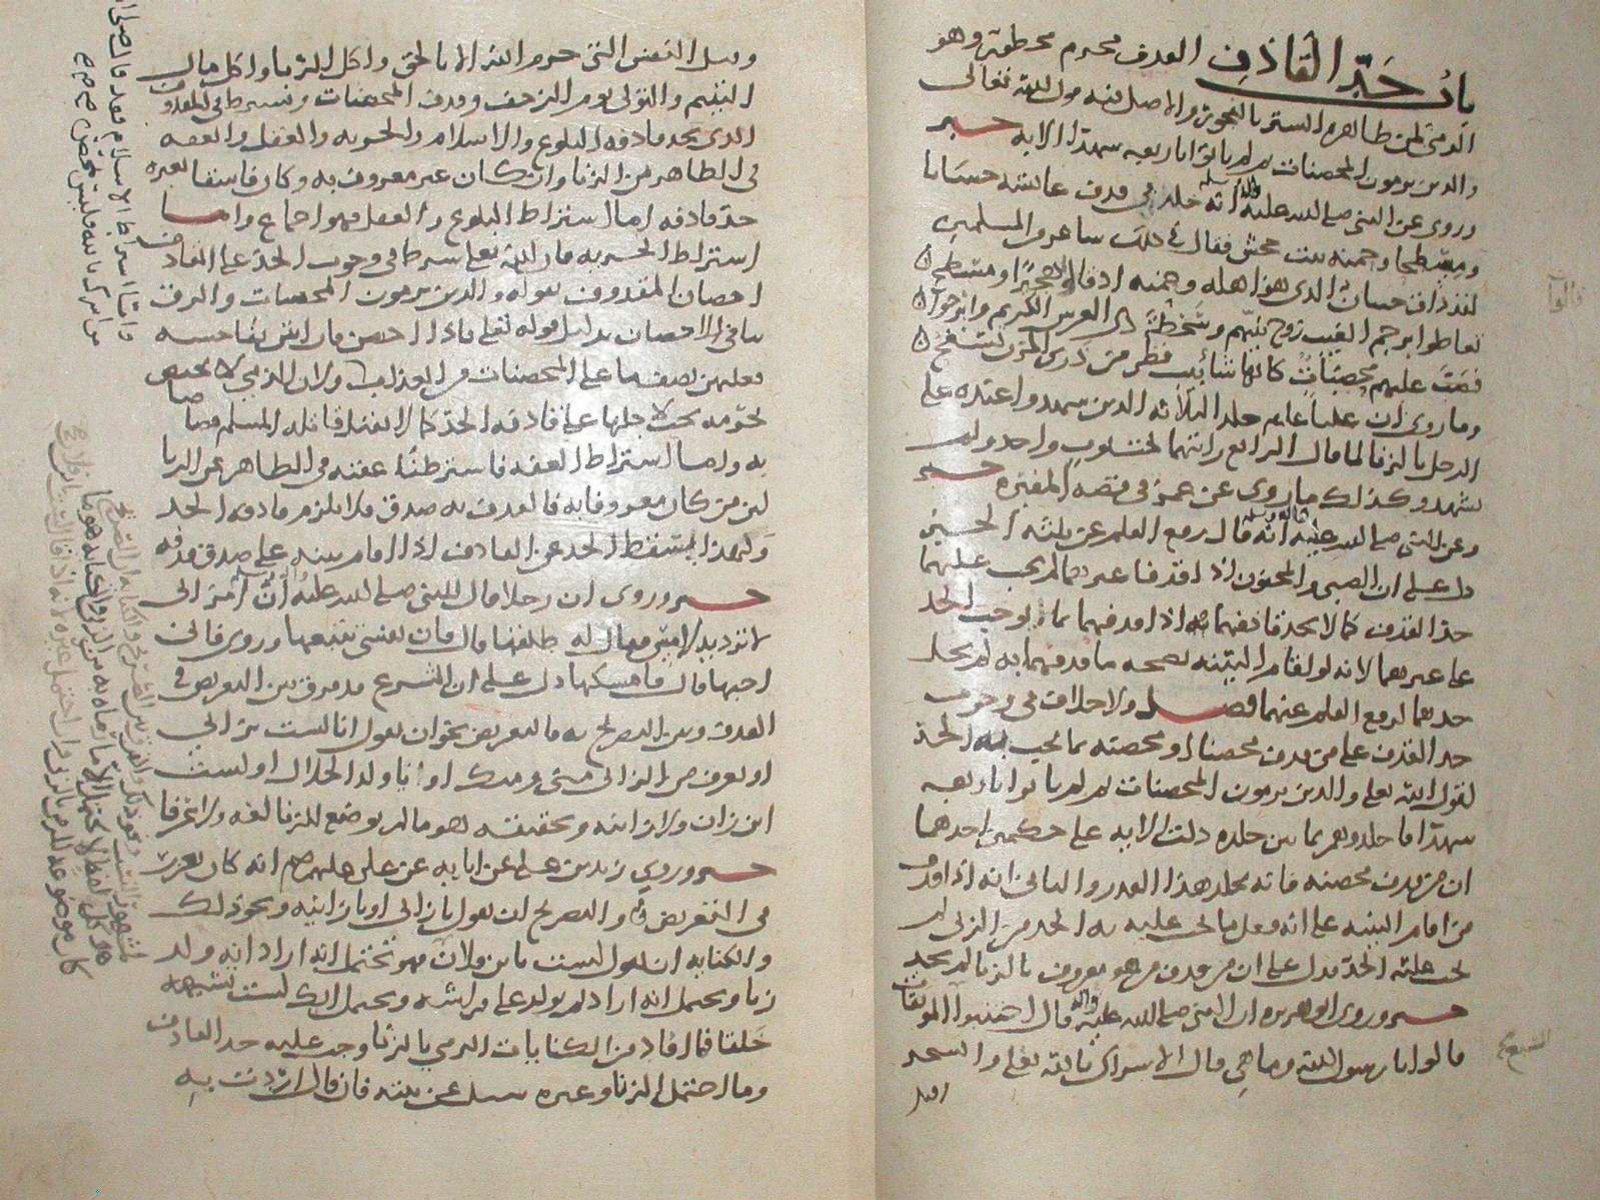 باب حَدِّ القَاذِفِ القذف محرم محظور وهو
الرمي لمن ظاهره الستر بالفجور والاصل فيه قول الله تعالى
والذين يرمون المحصنات ثم لم ياتوا باربعة شهدآ الايه خبر
وروى عن النبي صلى الله عليه وآله وسلم انه جلد في قذف عائشه حسَانا
ومِسْطحا وحمنه بنت جحش فقال في ذلك شاعر من المسلمين
لقد ذاق حسان الذي هو اهله وحمنه اذ قالوا هجيرًا ومسطح
تعاطوا برجم الغيب زوج نبيّهم وسَخطةَ ذي العرش الكريم وابرحوا
فصبت عليهم محصدَات كانها شآبيب قطر من ذرى المزن تسفح
وما روي ان علياً عليلم جلد الثلاثه الذين شهدوا عنده على
الرجل بالزنا لما قال الرابع رايتهما في ثوب واحد ولم
يشهد وكذلك ما روى عن عمر في قصه المغيره خبر
وعن النبي صلى الله عليه وآله وسلم انه قال رفع القلم عن ثلثه الخبر
دل على ان الصبي والمجنون اذا قذفا غيرهما لم يجب عليهما
حدّ القذف كما لا يحد قاذفهما اذا قذفهما بما يوجب الحد
على غيرهما لانه لو اقام البيّنه بصحه ما قذفهما به لم يجد
حدهما لرفع القلم عنهما فصل ولا خلاف في وجوب
حد القذف على من قذف محصنا او محصنه بما يجب به الحدّ
لقول الله تعلى والذين يرمون المحصنات ثم لم ياتوا باربعه
شهدآ فاجلدوهم ثمانين جلده دلت الايه على حكمين احدهما
ان من قذف محصنه فانه يجلد هذا القدر والثاني انه اذا قذف
من اقام البينه على انه فعل ما يجب عليه به الحد من الزنى لم
يجب عليه الحدّ فدل على ان من قذف من هو معروف بالزنا لم يحد
خبر وروى ابو هريره ان النبي صلى الله عليه وآله قال اجتنبوا الموبقات
قالوا يا رسول الله وما هي قال الاشراك بالله تعلى والسحر
وقتل
وقتل النفس التي حرم الله الا بالحق واكل الربا واكل مال
اليتيم والتولي يوم الزحف وقذف المحصنات ويشترط في المقذوف
الذي يحد قاذفه البلوغ والاسلام والحريه والعقل والعفه
في الظاهر من الزنا وان كان غير معروف به وكان فاسقا بغيره
حدّ قاذفه اما اشتراط البلوغ والعقل فهو اجماع واما
اشتراط الحريه فان الله تعلى شرط في وجوب الحدّ على القاذف
احصان المقذوف بقوله والذين يرمون المحصنات والرق
ينافي الاحصان بدليل قوله تعلى فاذا احصن فان اتين بفاحشه
فعليهن نصف ما على المحصنات من العذاب ولان الذمي لا يختص
بحرمه يجب لاجلها على قاذفه الحدّ كما لا يقتل قاتله المسلم قصاصا
به واما اشتراط العفه فاشترطنا عفته في الظاهر عن الزنا
لان من كان معروفا به فالقذف به صدق فلا يلزم قاذفه الحد
ولهذا يسقط الحد عن القاذف اذا اقام بينه على صدق قذفه
خبر وروى ان رجلا قال للنبي صلى الله عليه وسلم ان امرأتي
لا ترد يد لامس فقال له طلقها قال فان نفسي تتبعها وروى فاني
احبها قال فامسكها دل على ان الشرع قد فرق بين التعريض في
القذف وبين التصريح به فالتعريض نحو ان يقول انا لست بزاني
او يعرف من الزاني مني ومنك او انا ولد الحلال او لست
ابن زان ولا زانيه وحقيقته هو ما لم يوضع للزنا لغه ولا عرفا
خبر وروى زيد بن علي عن ابائه عن علي عليهم صم انه كان يعزر
في التعريض والتصريح ان يقول يا زانى او يا زانيه ونحو ذلك
والكنايه ان يقول لست بابن فلان فهو يحتمل انه اراد انه ولد
زنا ويحتمل انه اراد لم يولد على فراشه ويحتمل انك لست تشبهه
خَلقا فما افاد من الكنايات الرمي بالزنا وجب عليه حد القاذف
وما احتمل الزنا وغيره سئل عن نيته فان قال اردت به
واما اشتراط الاسلام فقد قال صلى
من اشرك بالله فليس بمحصن